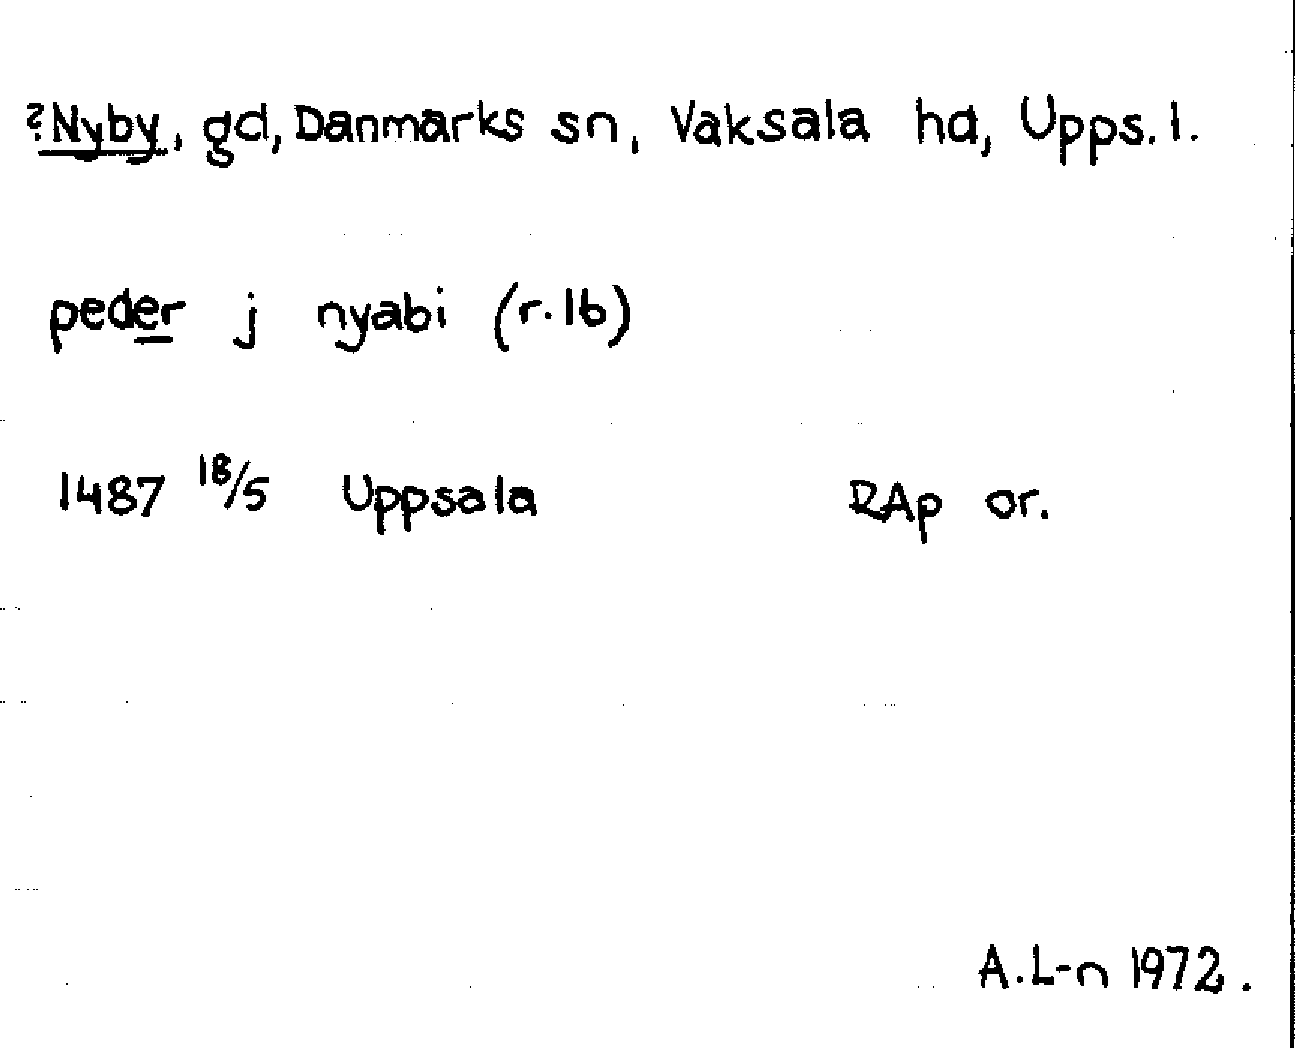 ?Nyby, gd, Danmarks sn, Vaksala hd, Upps. l.
peder j nyabi (r. 16)
1487 18/5 Uppsala RAp or.
A.L-n 1972.